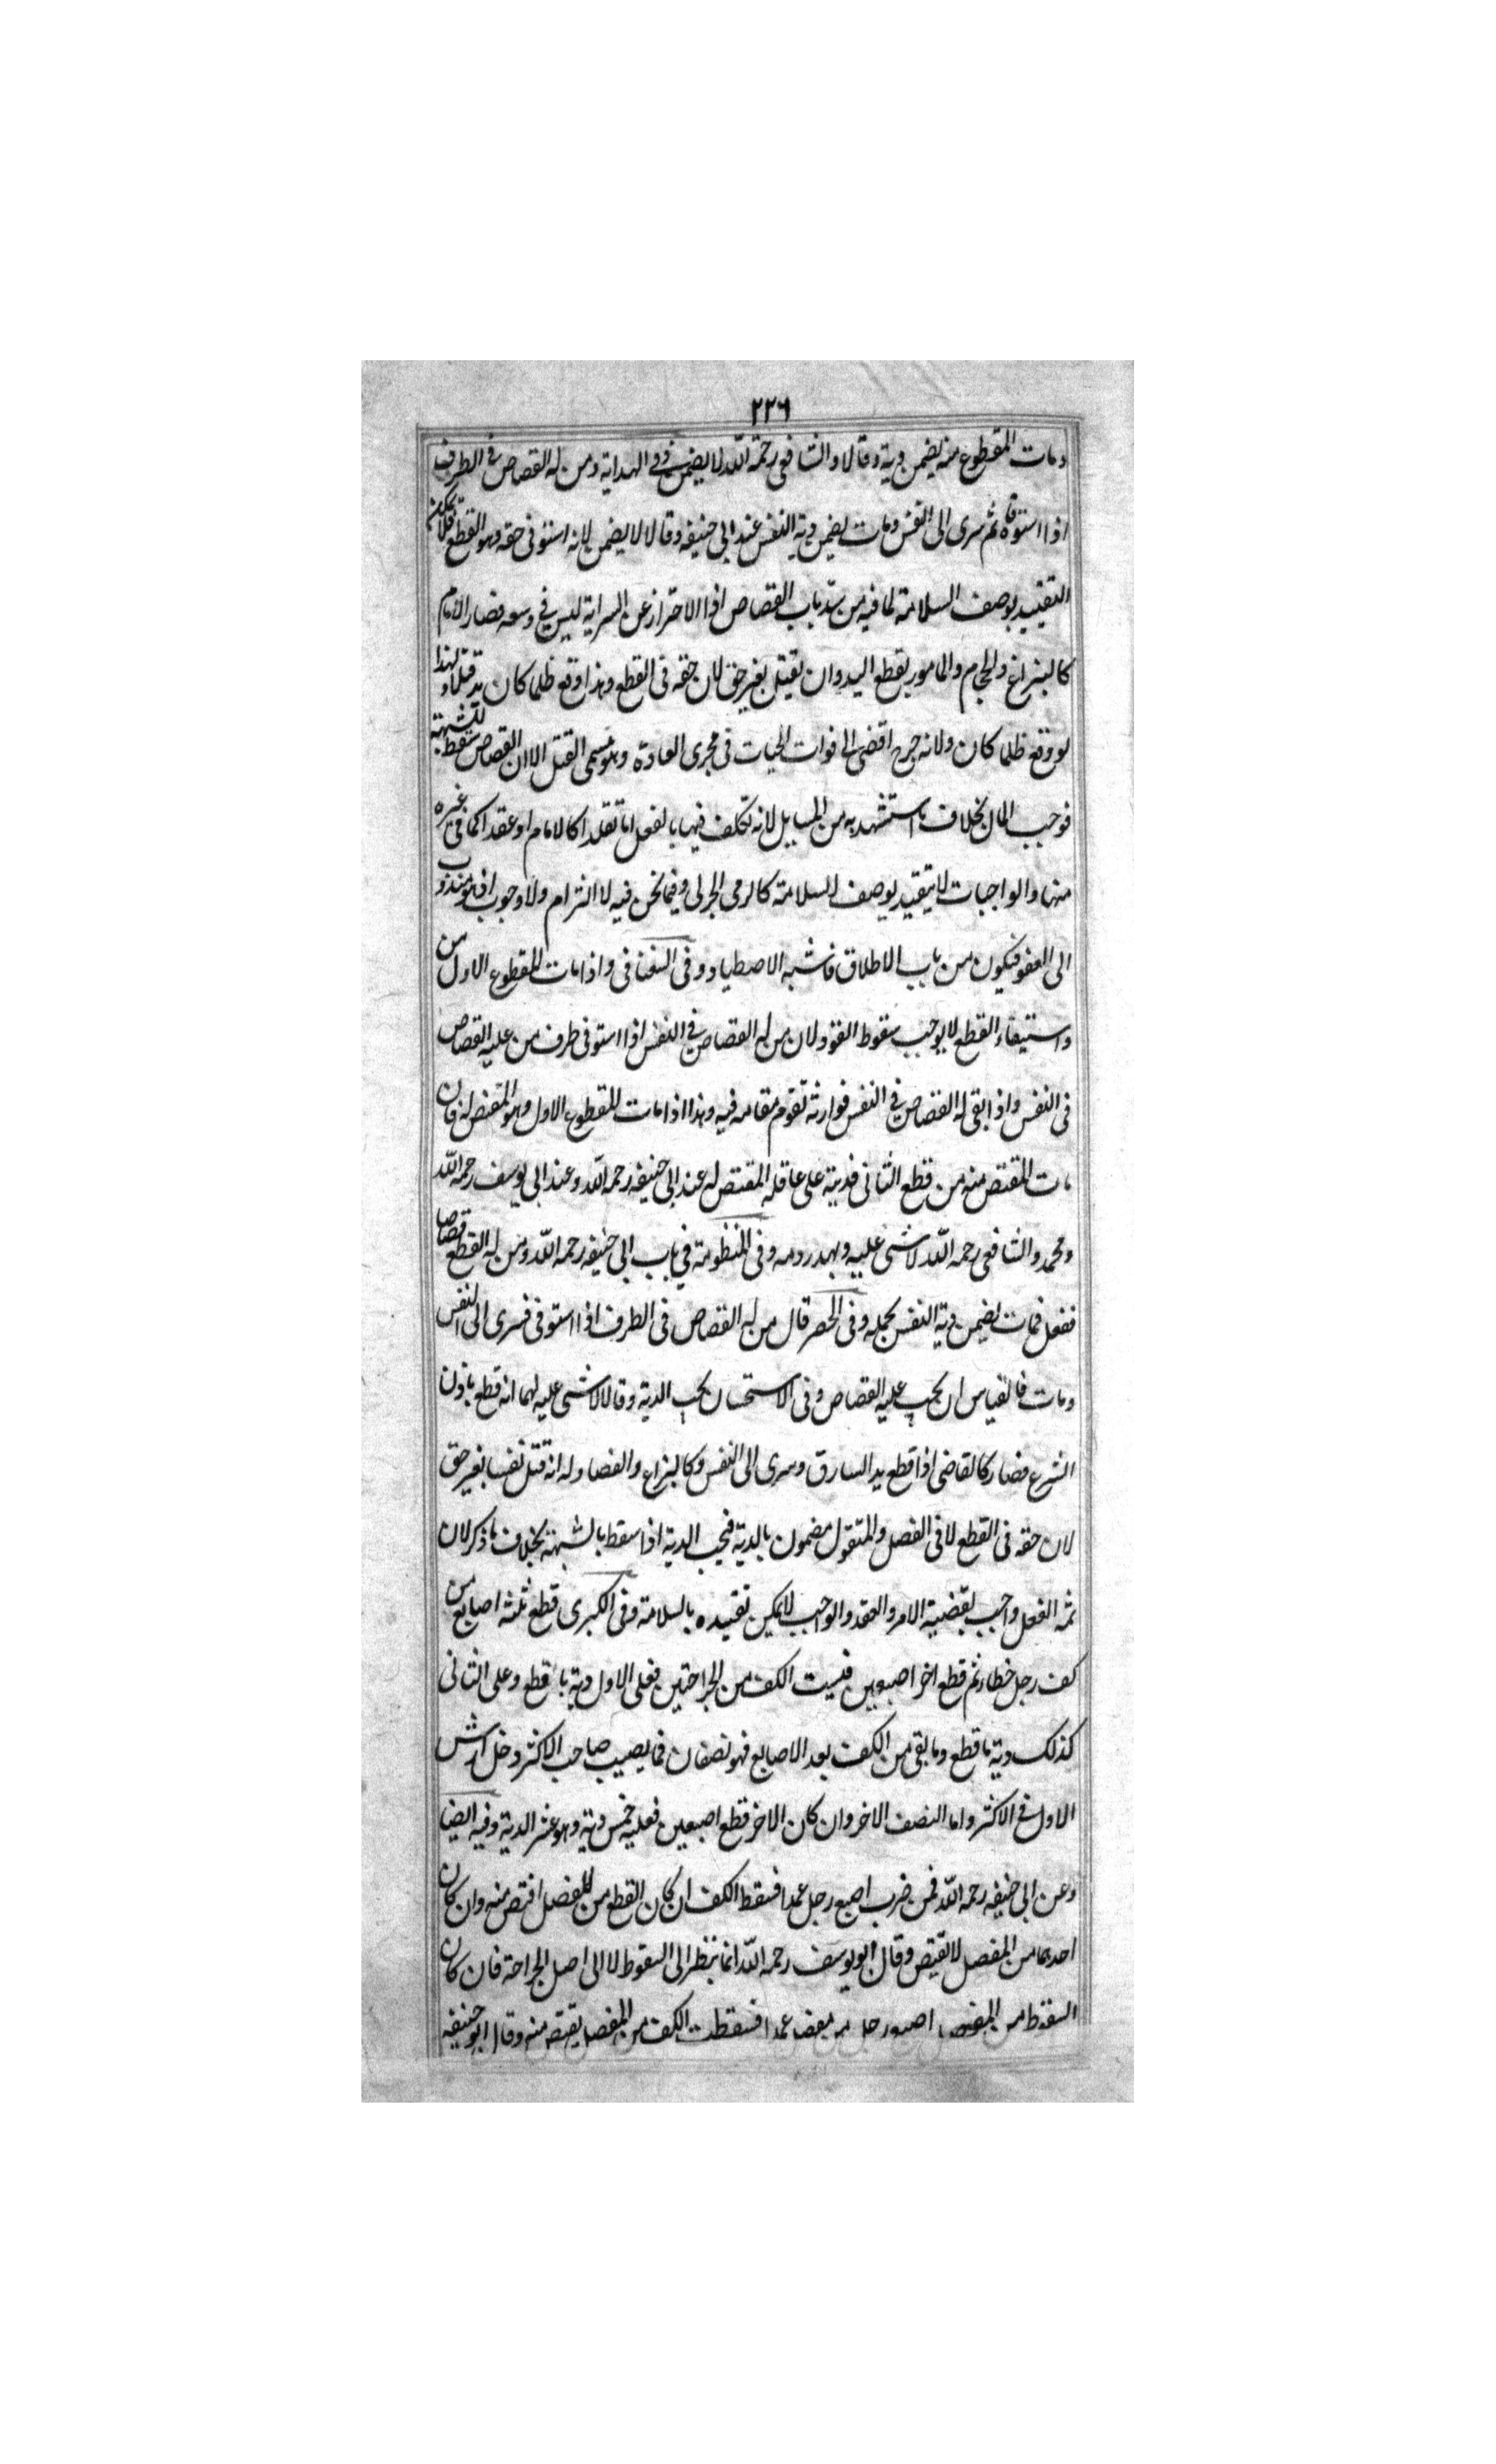 ٢٢٦
ومات المقطوع منه يضمن دية وقالا والشافعى رحمة الله لا يضمن وفى الهداية ومن له القصاص فى الطرف
اذا استوفاه ثم سرى الى النفس ومات يضمن دية النفس عند ابى حنيفه وقالا لا يضمن لانه استوفى حقه وهو القطع فلا يمكن
التقييد بوصف السلامة لما فيه من سد باب القصاص اذا الاحتراز عن السراية ليس فى وسعه فصار الامام
كالبزاغ والحجام والمامور بقطع اليد وان يقتل بغير حق لان حقه فى القطع وهذا وقع ظلما كان قتلا ولهذا
لو وقع ظلما كان ولانه جرح افضى الى فوات الحيات فى مجرى العادة وهو مسمى القتل الا ان القصاص سقط للشبهة
فوجب المال بخلاف ما استشهد به من المسايل لانه تكلف فيها بالفعل اما تقلدا كالامام او عقدا كما فى غيره
منها والواجبات لا يتقيد بوصف السلامة كالرمى الحربى وفيما نحن فيه لا التزام ولا وجوب اذ هو مندوب
الى العفو فيكون من باب الاطلاق فاشبه الاصطياد وفى السغناقى واذا مات المقطوع الاول من
واستيفاء القطع لا يوجب سقوط القود لان من له القصاص فى النفس اذا استوفى طرف من عليه القصاص
فى النفس واذا بقى له القصاص فى النفس فوارثه تقوم مقامه فيه وهذا اذا مات المقطوع الاول وهو المقتص له فان
مات المقتص منه من قطع الثانى فديته على عاقله المقتص له عند ابى حنيفه رحمه الله وعند ابى يوسف رحمه الله
ومحمد والشافعى رحمه الله لا شىء عليه ويهدر دمه وفى المنظومة فى باب ابى حنيفه رحمه الله ومن له القطع قصاصا
ففعل فمات يضمن دية النفس بجمله وفى الحصر قال من له القصاص فى الطرف اذا استوفى فسرى الى النفس
ومات فالقياس ان يجب عليه القصاص وفى الاستحسان يجب الدية وقالا لا شىء عليه لهما انه قطع باذن
الشرع فصار كالقاضى اذا قطع يد السارق وسرى الى النفس وكالبزاع والفصاد له انه قتل نفسا بغير حق
لان حقه فى القطع لا فى الفصل والمتقول مضمون بالدية فيجب الدية اذا سقط بالشبهة بخلاف ما ذكر لان
ثمه الفعل واجب بقضية الامر والعقد والواجب لا يمكن تقييده بالسلامة وفى الكبرى قطع ثلثه اصابع من
كف رجل خطاء ثم قطع اخر اصبعين فنسيت الكف من الجراحتين فعلى الاول دية ما قطع وعلى الثانى
كذلك دية ما قطع وما بقى من الكف بعد الاصابع فهو نصفان فما يصيب صاحب الاكثر دخل ارش
الاول فى الاكثر واما النصف الاخر وان كان الاخر قطع اصبعين فعليه خمس دية وهو عشر الدية وفيه ايضا
وعن ابى حنيفه رحمه الله فمن ضرب اصبع رجل عمدا فسقط الكف ان كان القطع من المفصل اقتص منه وان كان
احدهما من المفصل لا يقتص وقال ابو يوسف رحمه الله انما ينظر الى السقوط لا الى اصل الجراحة فان كان
السقوط من المفصل اصبع رجل من مفصل عمدا فسقطت الكف من المفصل يقتص منه وقال ابو حنيفه